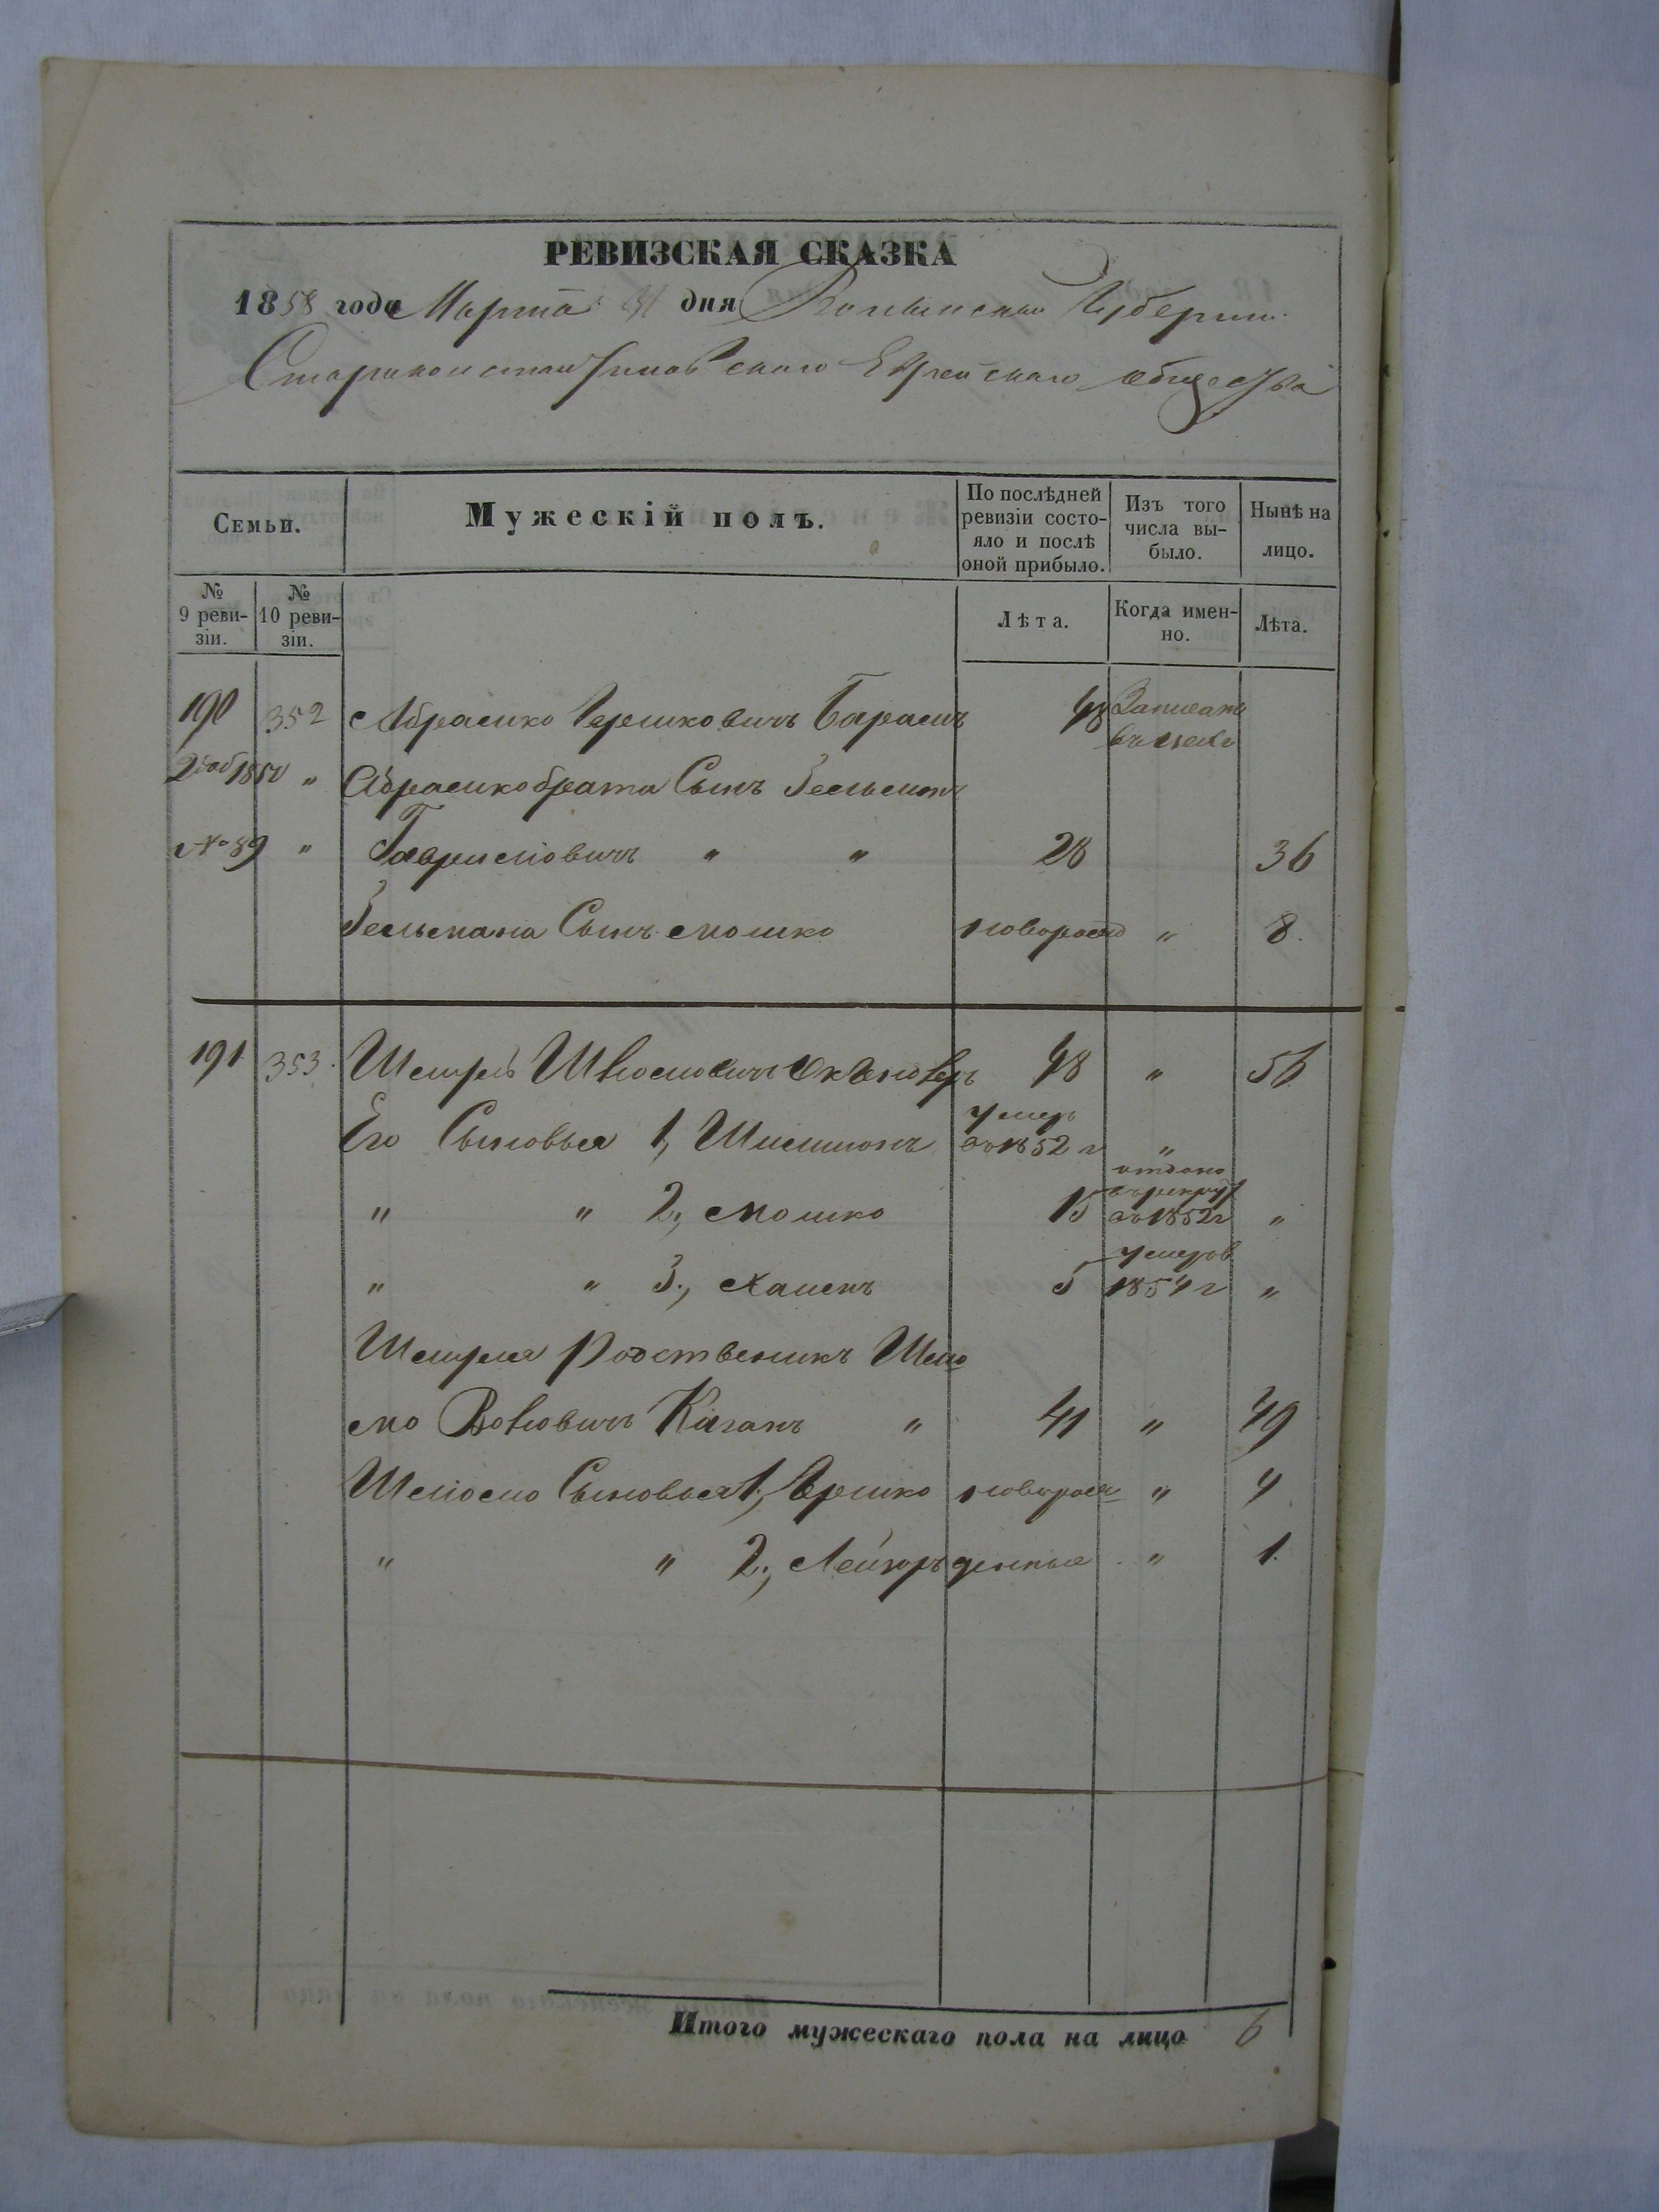 РЕВИЗСКАЯ СКАЗКА
1858 года Марта 31 дня Волынской Губернии
Староконстантиновского Еврейскаго общества
Семьи. Мужескій полъ. По послѣдней ревизіи состояло и послѣ оной прибыло. Изъ того числа выбыло. Нынѣ на лицо.
№ 9 ревизіи. № 10 ревизіи. Лѣта. Когда именно. Лѣта.
190 352 Абрамко Гершковичъ 48
2 доб 1850 " Абрамко брата Сынъ Зельманъ
№ 89 " Гавриловичъ " " 28 36
Зельмана Сынъ Мошко новорожд " 8.
191 353. 48 " 56
Его Сыновья 1, Шимшонъ умеръ въ 1852 г "
" " 2, Мошко 15 отданъ въ рекрут въ 1852 г "
" " 3, 5 умеръ в 1854 г "
Родственикъ Шлио
мо Вольовичъ Каганъ " 41 " 49
Шлиомо Сыновья 1, Ершко новорож " 4
" " 2, Лейзоръ денные " 1.
Итого мужескаго пола на лицо 6